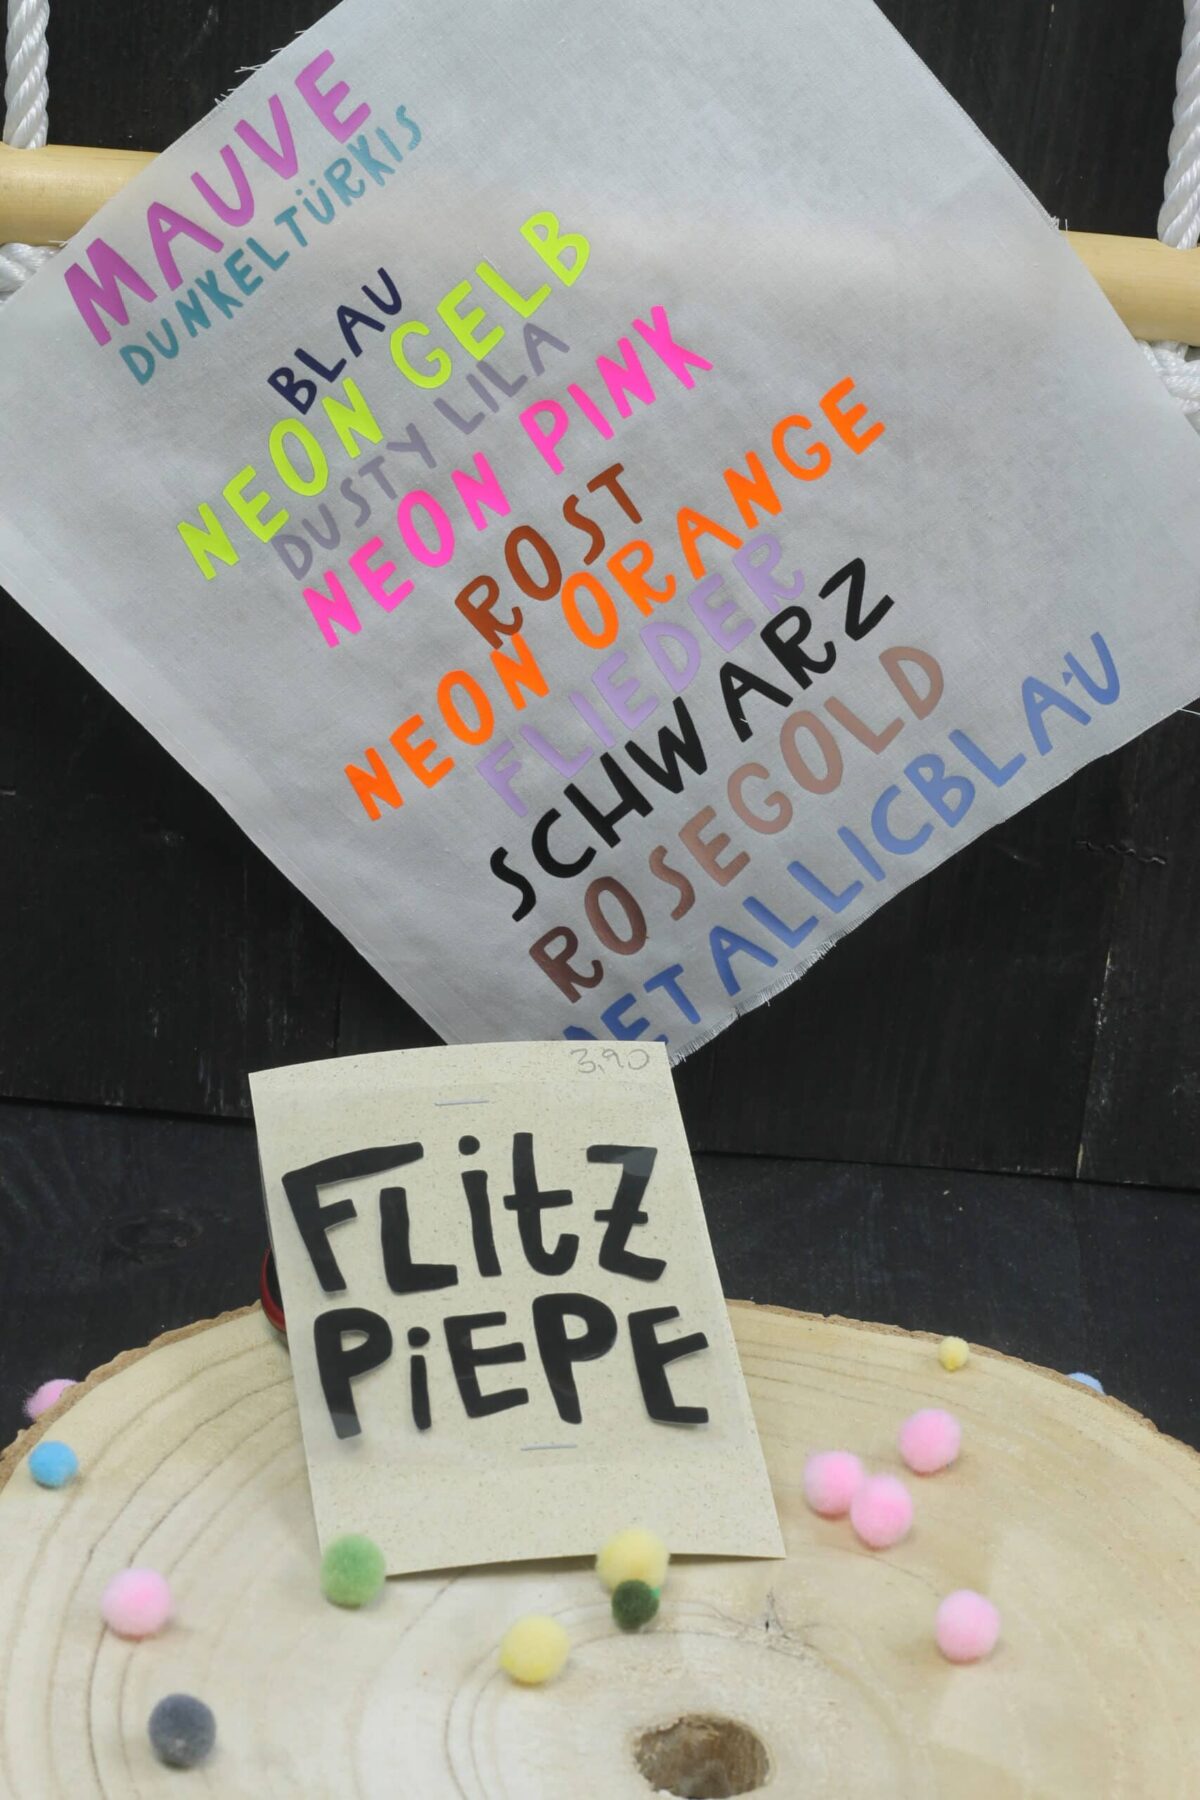 MAUVE
DUNKELTÜRKIS
BLAU
NEON GELB
DUSTY LILA
NEON PINK
ROST
NEON ORANGE
FLIEDER
SCHWARZ
ROSEGOLD
METALLICBLAU
3,90
FLiTZ
PiEPE